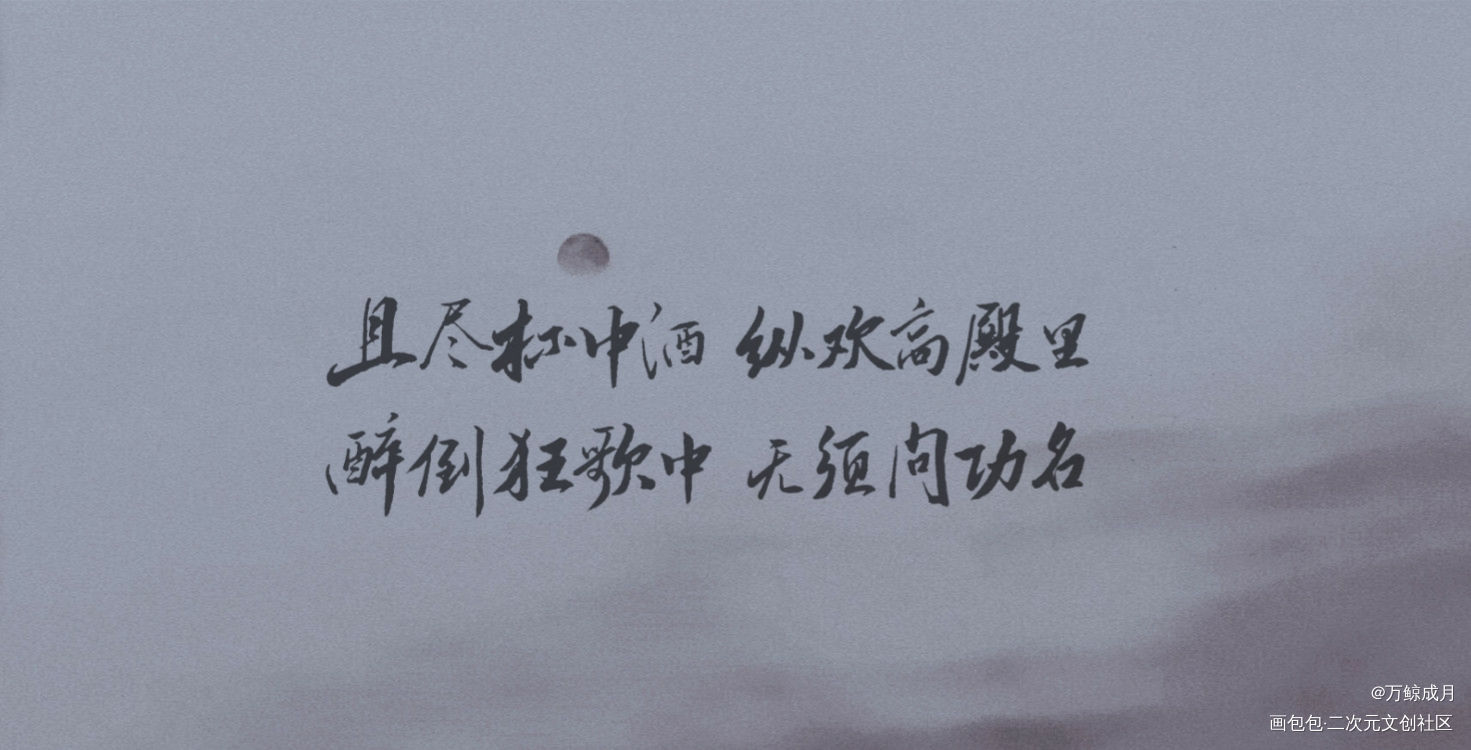 且尽杯中酒 纵欢高殿里
醉倒狂歌中 无须问功名
@万鲸成月
画包包·二次元文创社区